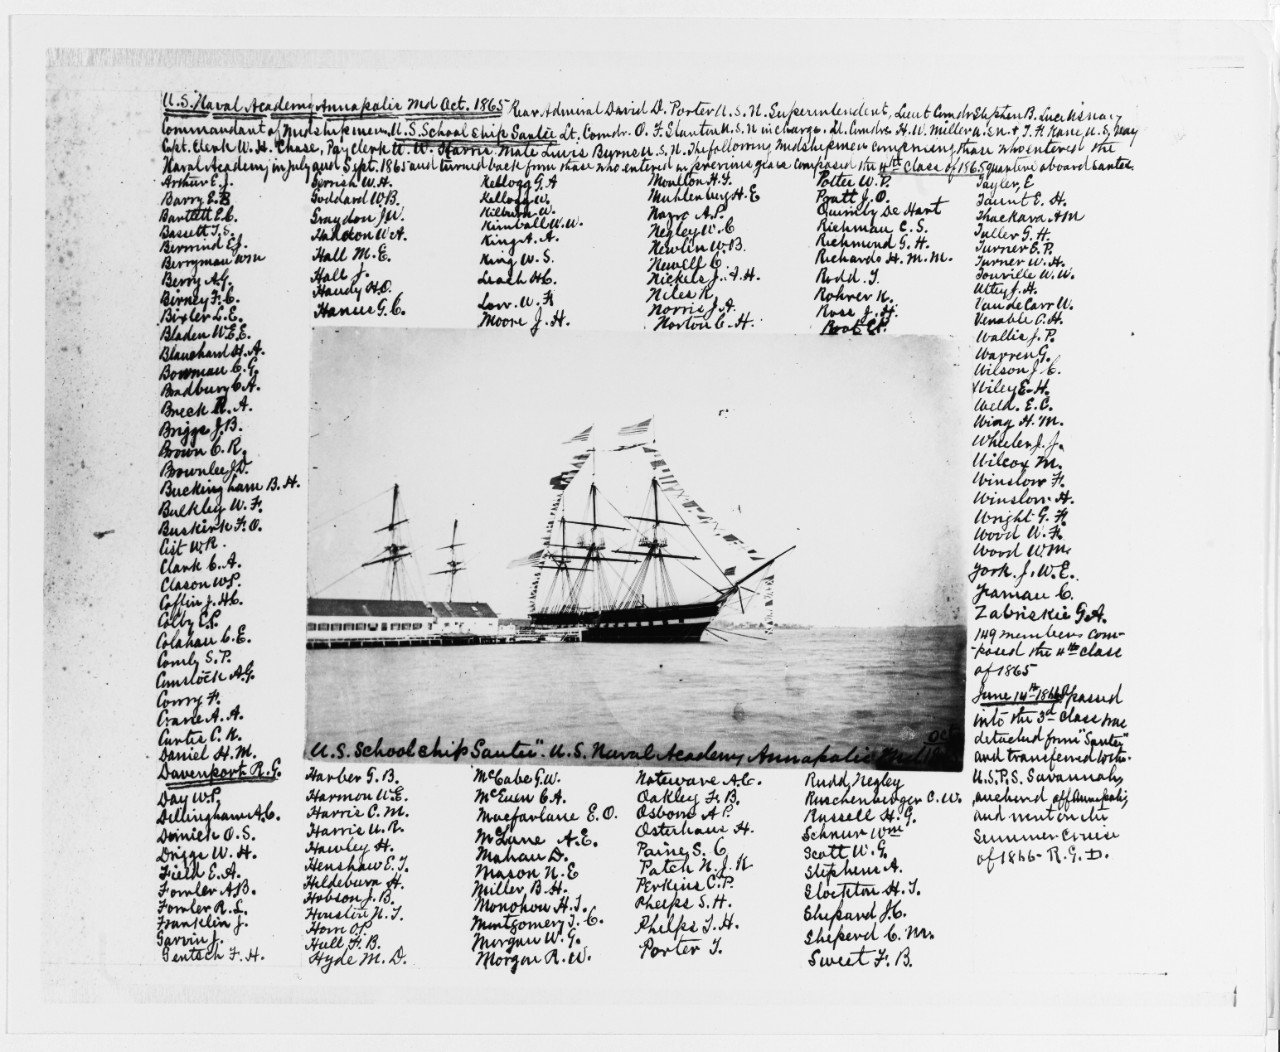 U.S. Naval Academy Annapolis Md Oct. 1865 Rear Admiral David D. Porter U.S.N. Superintendent, Lieut Comdr Stephen B. Luce U.S. Navy
Commandant of Midshipmen. U.S. School ship Santee Lt. Comdr. O. F. Stanton U.S.N in charge. Lt. Comdrs H.W. Miller U.S.N. & T. H. Kane, U.S. Navy
Capt. Clerk W. H. Chase, Pay Clerk W. W. Harris Mate Lewis Byrne U.S.N. The following Midshipmen comprising those who entered the
Naval Academy in July and Sept. 1865 and turned back from those who entered in previous years composed the 4th Class of 1865 quartered aboard Santee.
Arthur E. J.
Barry E. B
Bartlett E. C.
Bassett F. S.
Bermind E. J.
Berryman Wm
Berry A. G.
Birney F. C.
Bixler L. E.
Bladen W. E. E.
Blanchard H. A.
Bowman C. G.
Bradbury C. A.
Breck R. A.
Briggs J. B.
Brown C. R.
Brownlee J. D.
Buckingham B. H.
Bulkley W. F.
Buskirk F. O.
Cist W. R.
Clark C. A.
Clason W. P.
Coffin J. H. C.
Colby E. P.
Colahan C. E.
Comly S. P.
Comstock A. G.
Conry F.
Crane A. A.
Curtis C. K.
Daniel H. M.
Davenport R. G.
Day W. P.
Dillingham A. C.
Dimick O. S.
Driggs W. H.
Field E. A.
Fowler A. B.
Fowler R. L.
Franklin J.
Garvin J.
Gentsch F. H.
Gerrish W. H.
Goddard W. B.
Graydon J. W.
Haddon W. A.
Hall M. E.
Hall J.
Handy H. O.
Hanus G. C.
Harber G. B.
Harmon W. E.
Harris C. M.
Harris U. R.
Hawley H.
Henshaw E. T.
Hildeburn H.
Hobson J. B.
Houston N. T.
Horn O. P.
Hull F. B.
Hyde M. D.
Kellogg G. A
Kellogg W.
Kilburn W.
Kimball W. W.
King A. A.
King W. S.
Leach H. C.
Low. W. F
Moore J. H.
McCabe G. W.
McEuen C. A.
Macfarlane E. O.
McLane A. E.
Mahan D.
Mason N. E
Miller B. H.
Monohon H. I.
Montgomery T. C.
Morgan W. G.
Morgan R. W.
Moulton H. F.
Muhlenburg H. E
Nazro A. P.
Negley W. C
Newlin W. B.
Newell C.
Nickels J. A. H.
Niles K.
Norris J. A.
Norton C. H.
Noteware A. C.
Oakley F. B.
Osborn A. P.
Osterhaus H.
Paine S. C
Patch N. J. K
Perkins C. P.
Phelps S. H.
Phelps T. H.
Porter T.
Potter W. P.
Pratt J. O.
Quimby De Hart
Richman C. S.
Richmond G. H.
Richards H. M. M.
Rodd T.
Rohrer K.
Rose J. H.
Root C. P.
Rudd, Negley
Ruschenberger C. W.
Russell H. G.
Schnur Wm
Scott W. G.
Stephens A.
Stockton H. T.
Shepard J. C.
Sheperd C. M.
Sweet F. B.
Tayler, E
Taunt E. H.
Thackara A M
Tuller G. H.
Turner E. P.
Turner W. H.
Touville W. W.
Utley J. H.
Van de Carr W.
Venable C. H.
Wallis J. P.
Warren G.
Wilson J. C.
Wiley E. H.
Weld. E. C.
Wing H. M.
Wheeler J. J.
Wilcox M.
Winslow F.
Winslow H.
Wright G. F.
Wood W. F.
Wood W M
York. J. W. E.
Yeaman C.
Zabriskie G. A.
149 members com-
-posed the 4th class
of 1865
June 14th 1866 passed
into the 3d class was
detached from "Santee"
and transferred to the
U.S.P.S. Savannah,
anchored off Annapolis,
and went on the
Summer Cruise
of 1866- R. G. D.
U.S. School ship Santee". U.S. Naval Academy Annapolis Md Oct